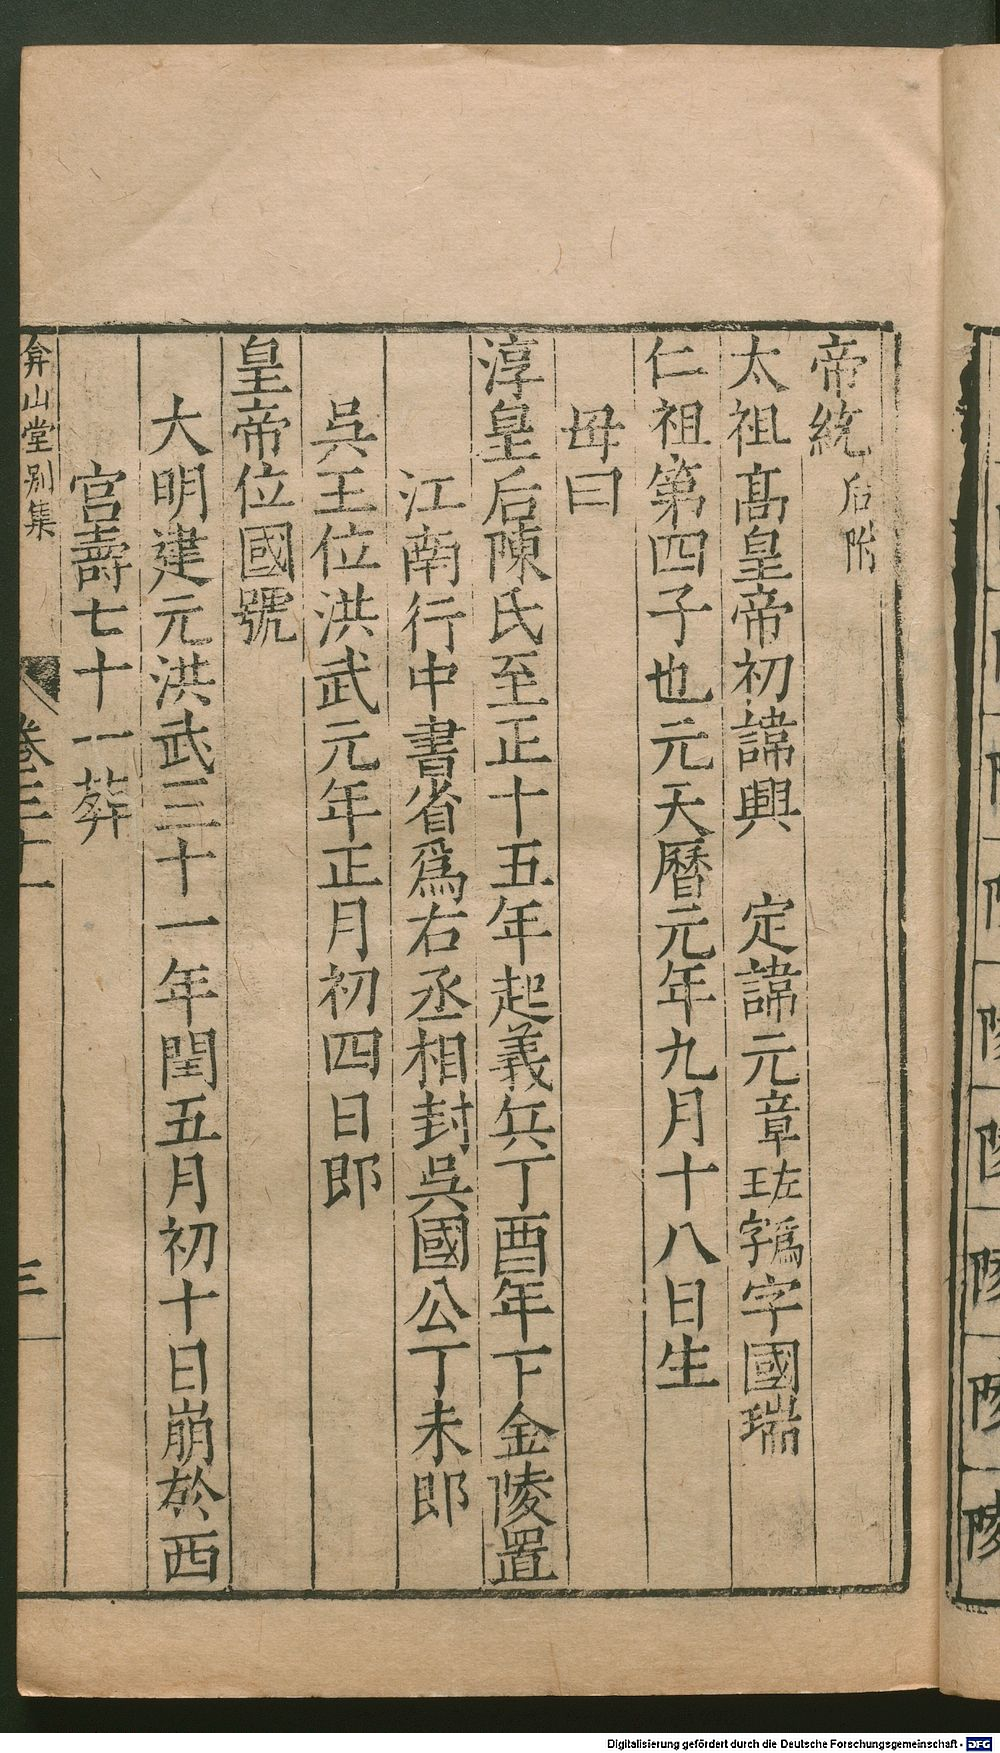 帝統后附
太祖髙皇帝初諱興　定諱元章王左字爲字國瑞
仁祖第四子也元天曆元年九月十八日生
母曰
淳皇后陳氏至正十五年起義兵丁酉年下金陵置
江南行中書省爲右丞相封吳國公丁未郎
吳王位洪武元年正月初四日郎
皇帝位國號
大明建元洪武三十一年閏五月初十日崩於西
宫壽七十一葬
弇山堂别集
卷三十一
三
Digitalisierung gefördert durch die Deutsche Forschungsgemeinschaft - DFG